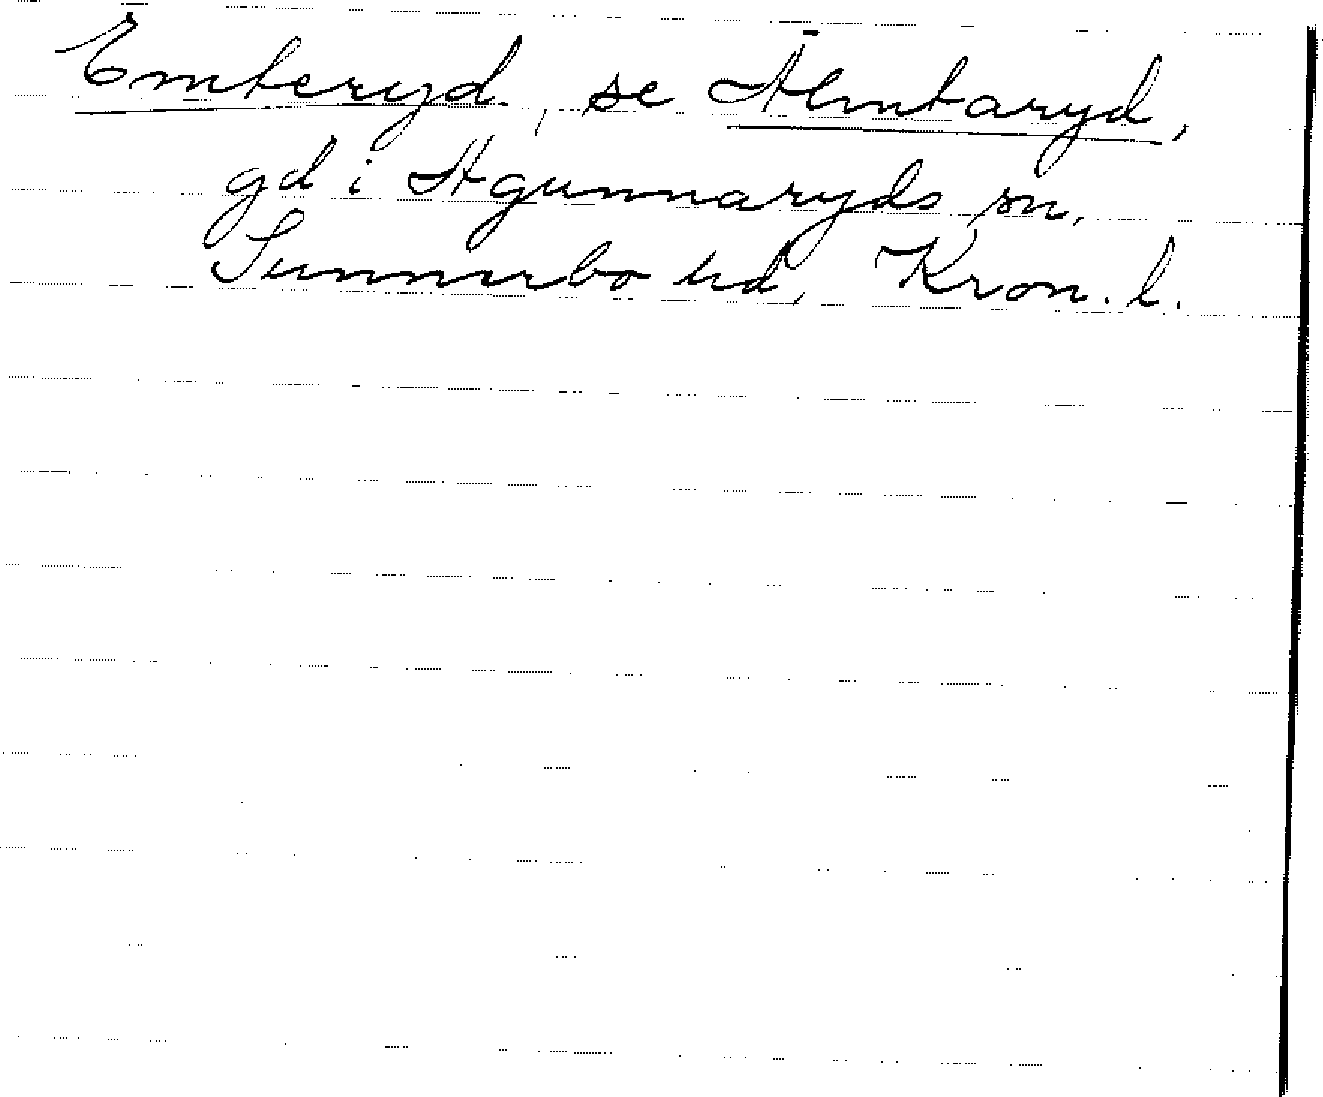 Emteryd, se Älmtaryd,
gd i Agunnaryds sn,
Sunnerbo hd, Kron. l.